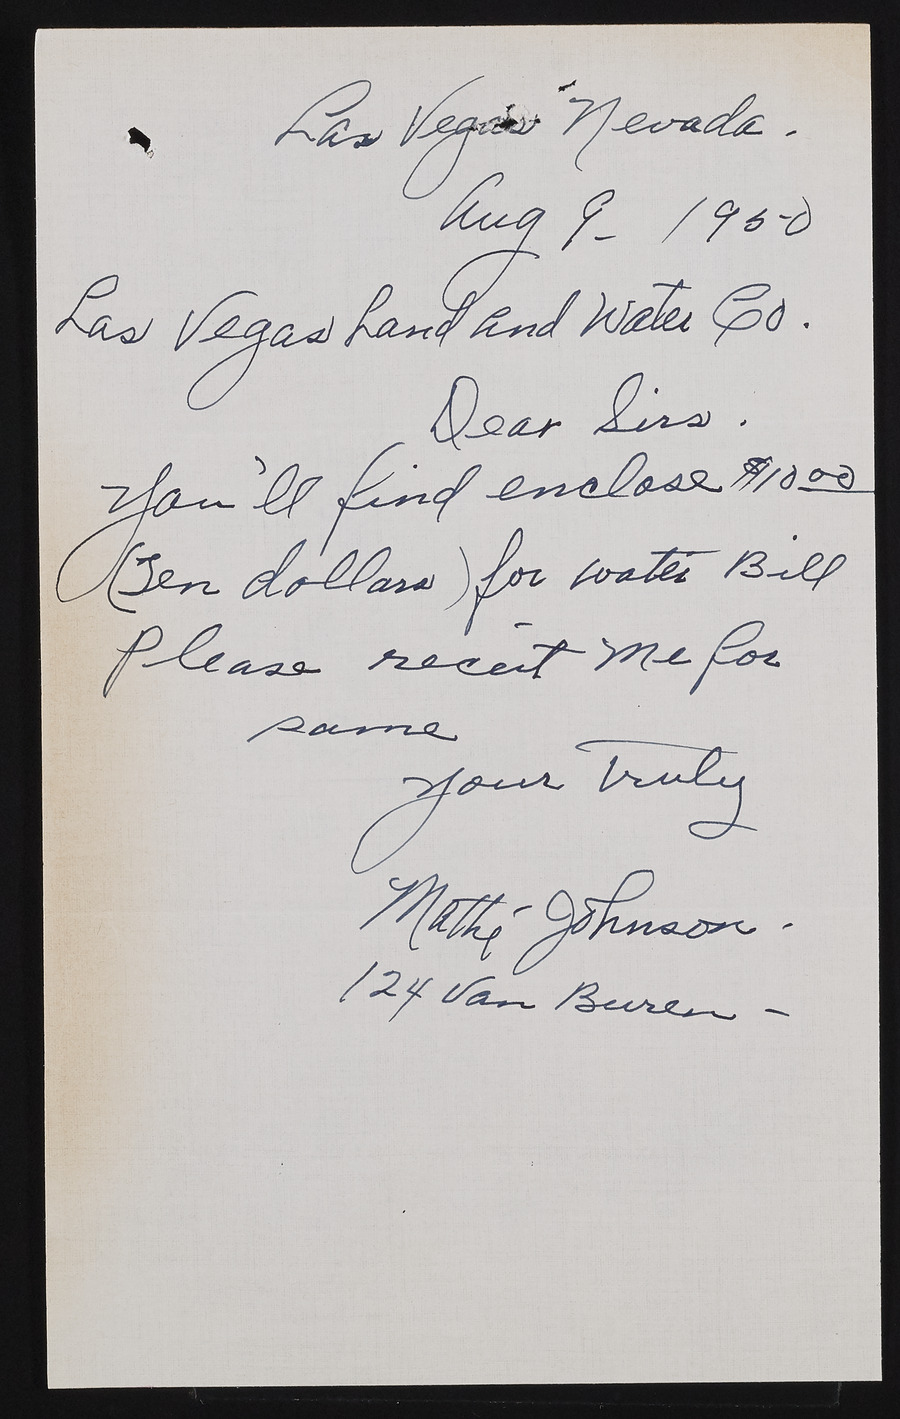 Las Vegas Nevada.
Aug 9 - 1950
Las Vegas Land and Water Co.
Dear Sirs.
You'll find enclose $10 00
(Ten dollars) for water Bill
Please receit me for
same
Your Truly
Mathe Johnson.
124 Van Buren -